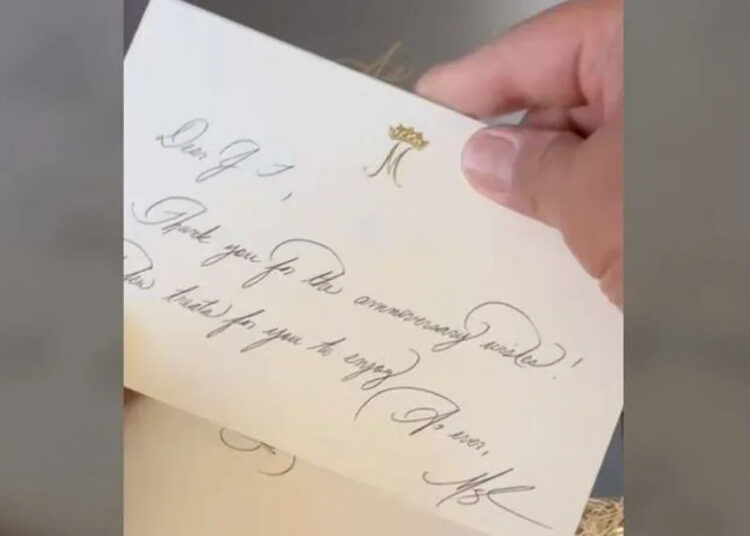 M
Dear
Thank you for the anniversary wishes!
few treats for you to enjoy
As ever,